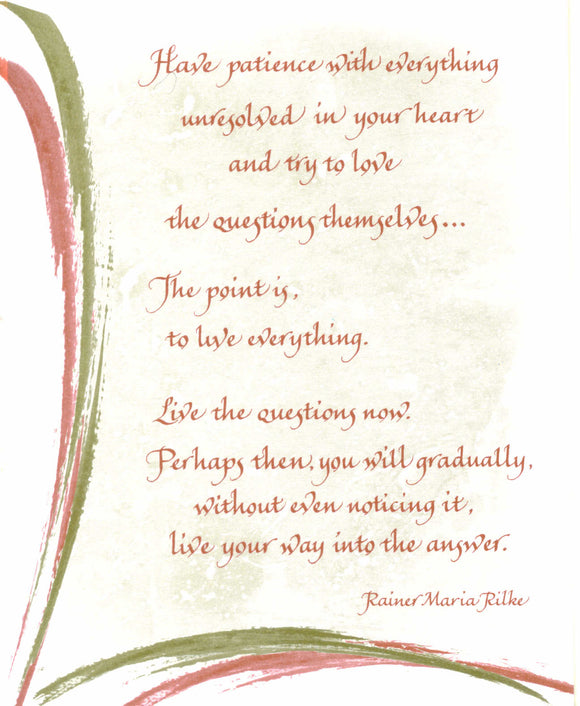 Have patience with everything
unresolved in your heart
and try to love
the questions themselves...
The point is,
to live everything.
Live the questions now.
Perhaps then, you will gradually,
without even noticing it,
live your way into the answer.
Rainer Maria Rilke